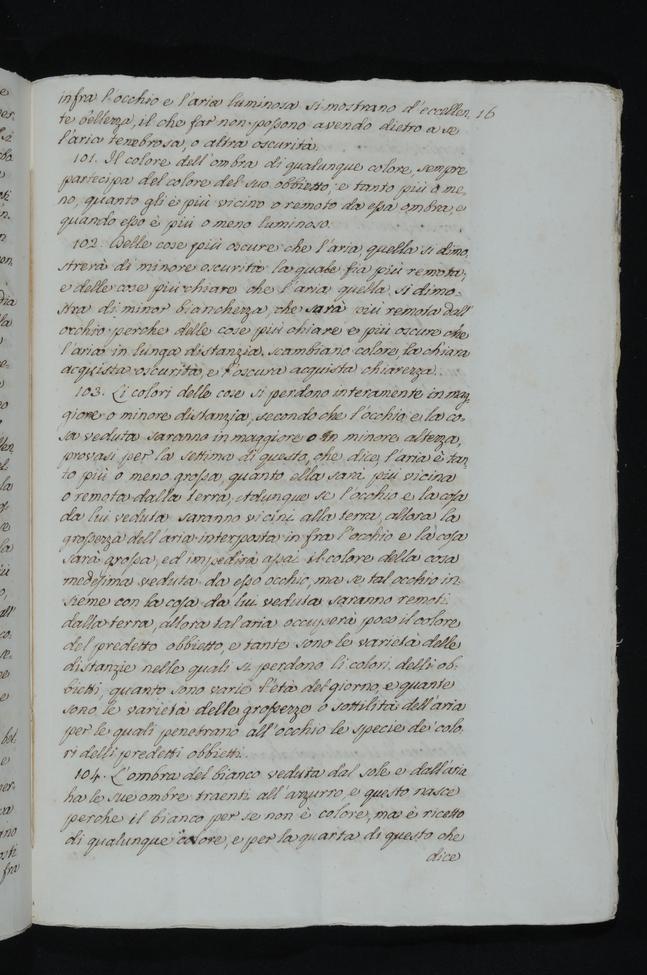 infra l'occhio e l'aria luminosa si mostrano d'eccellen 16
te bellezza, il che far non possono avendo dietro a se
l'aria tenebrosa, o altra oscurità.
101. Il colore dell'ombra di qualunque colore, sempre
partecipa del colore del suo obbietto, e tanto più o me-
no, quanto gli è più vicino o remoto da essa ombra, e
quando esso è più o meno luminoso.
102. Delle cose più oscure che l'aria, quella si dimo
strerà di minore oscurità la quale fia più remota;
e delle cose più chiare che l'aria quella si dimo-
stra di minor bianchezza, che sarà più remota dall'
occhio perche delle cose più chiare e più oscure che
l'aria in lunga distanzia scambiano colore, la chiara
acquista oscurità, e l'oscura acquista chiarezza.
103. Li colori delle cose si perdono interamente in mag
giore o minore distanzia, secondo che l'occhio e la co-
sa veduta saranno in maggiore o in minore altezza,
provasi per la settima di questo, che dice, l'aria è tan
to più o meno grossa, quanto ella sarà più vicina
o remota dalla terra, adunque se l'occhio e la cosa
da lui veduta saranno vicini alla terra, allora la
grossezza dell'aria interposta infra l'occhio e la cosa
sarà grossa, ed impedirà assai il colore della cosa
medesima veduta da esso occhio, ma se tal occhio in-
sieme con la cosa da lui veduta saranno remoti
dalla terra, allora tal aria occuperà poco il colore
del predetto obbietto, e tante sono le varietà delle
distanzie nelle quali si perdono li colori delli ob-
bietti, quanto sono varie l'età del giorno, e quante
sono le varietà delle grossezze o sottilità dell'aria
per le quali penetrano all'occhio le specie de' colo-
ri delli predetti obbietti.
104. L'ombra del bianco veduta dal sole e dall'aria
ha le sue ombre traenti all'azzurro, e questo nasce
perche il bianco per se non è colore, ma è ricetto
di qualunque colore, e per la quarta di questo che
dice